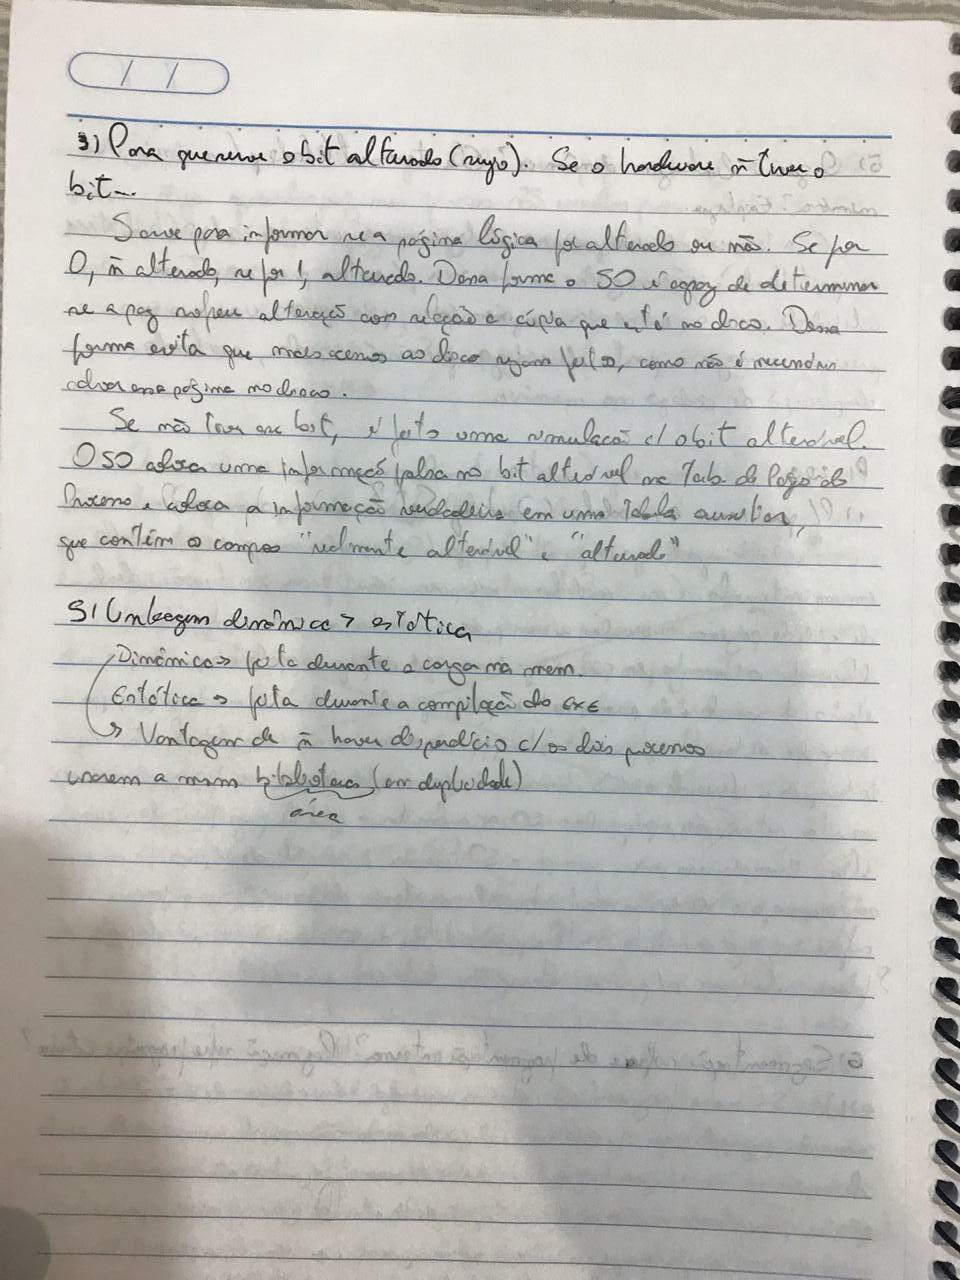 3) Para que serve o bit alterado (sujo). Se o hardware ñ tiver o
bit...
Serve para informar se a página lógica foi alterada ou não. Se for
0, ñ alterado, se for 1, alterado. Dessa forma o SO é capaz de determinar
se a pag sofreu alteração com relação a cópia que está no disco. Dessa
forma evita que mais acessos ao disco sejam feitos, como não é necessário
essa página no disco.
Se não tiver esse bit, é feito uma simulação c/ o bit alterável.
O SO coloca uma informação falsa no bit alterável na Tab. de Págs do
Processo e coloca a informação verdadeira em uma Tabela auxiliar,
que contém os campos "realmente alterável" e "alterado"
5) Linkagem dinâmica > estática
Dinâmica → feita durante a carga na mem.
Estática → feita durante a compilação do exe
↳ Vantagem de ñ haver desperdício c/ os dois processos
usarem a mesm biblioteca (em duplicidade)
área